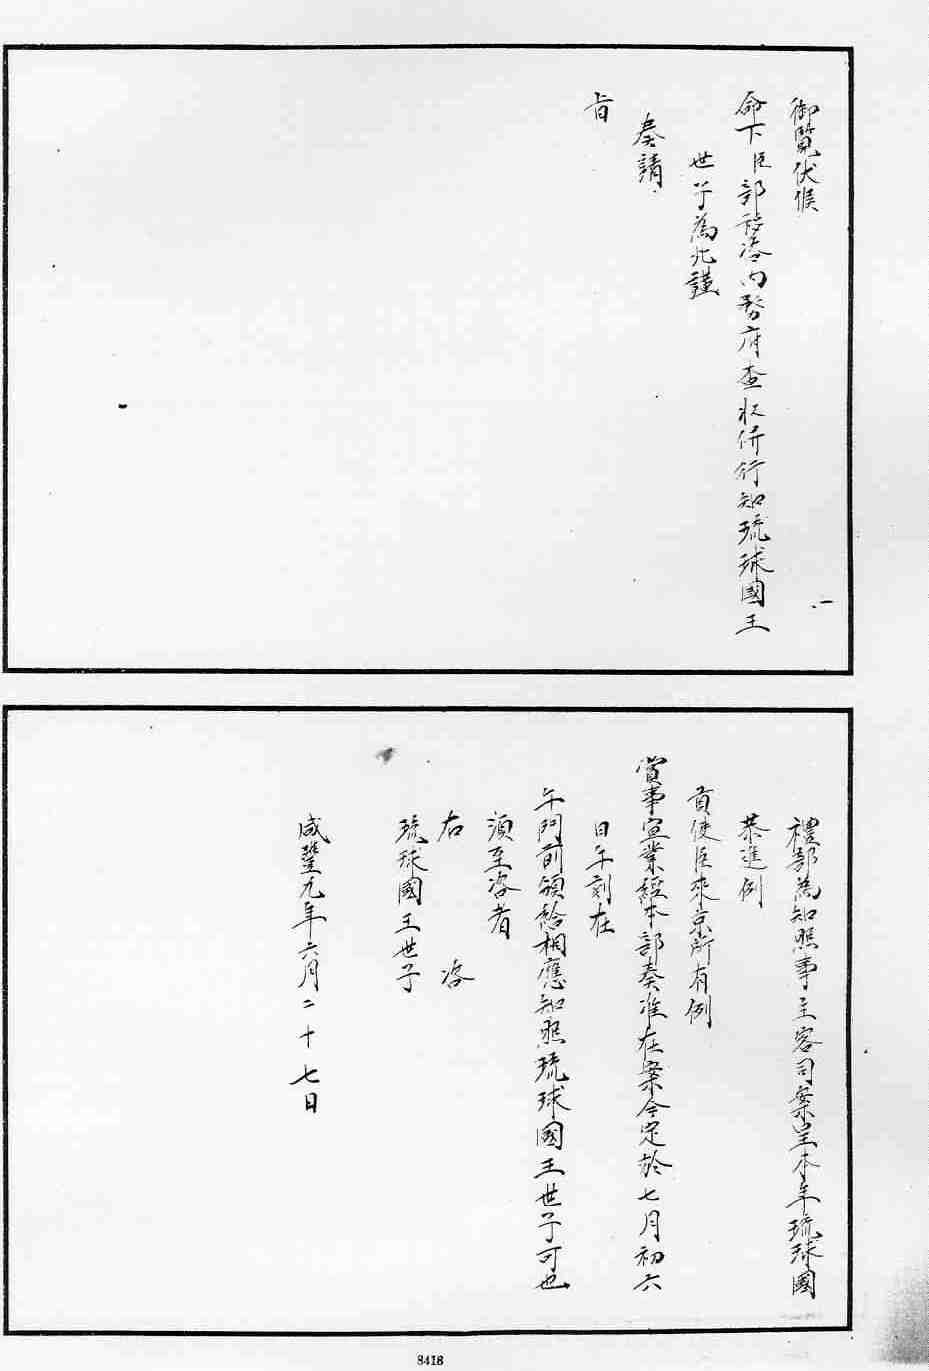 御覧伏候
命下臣部移咨内務府查收併行知琉球國王
世子為此謹
奏請
旨
禮部為知照事主客司案呈本年琉球國
恭進例
貢使臣來京所有例
賞事宜業經本部奏准在案今定於七月初六
日午刻在
午門前頒給相應知照琉球國王世子可也
須至咨者
右 咨
琉球國王世子
咸豐九年六月二十七日
8418